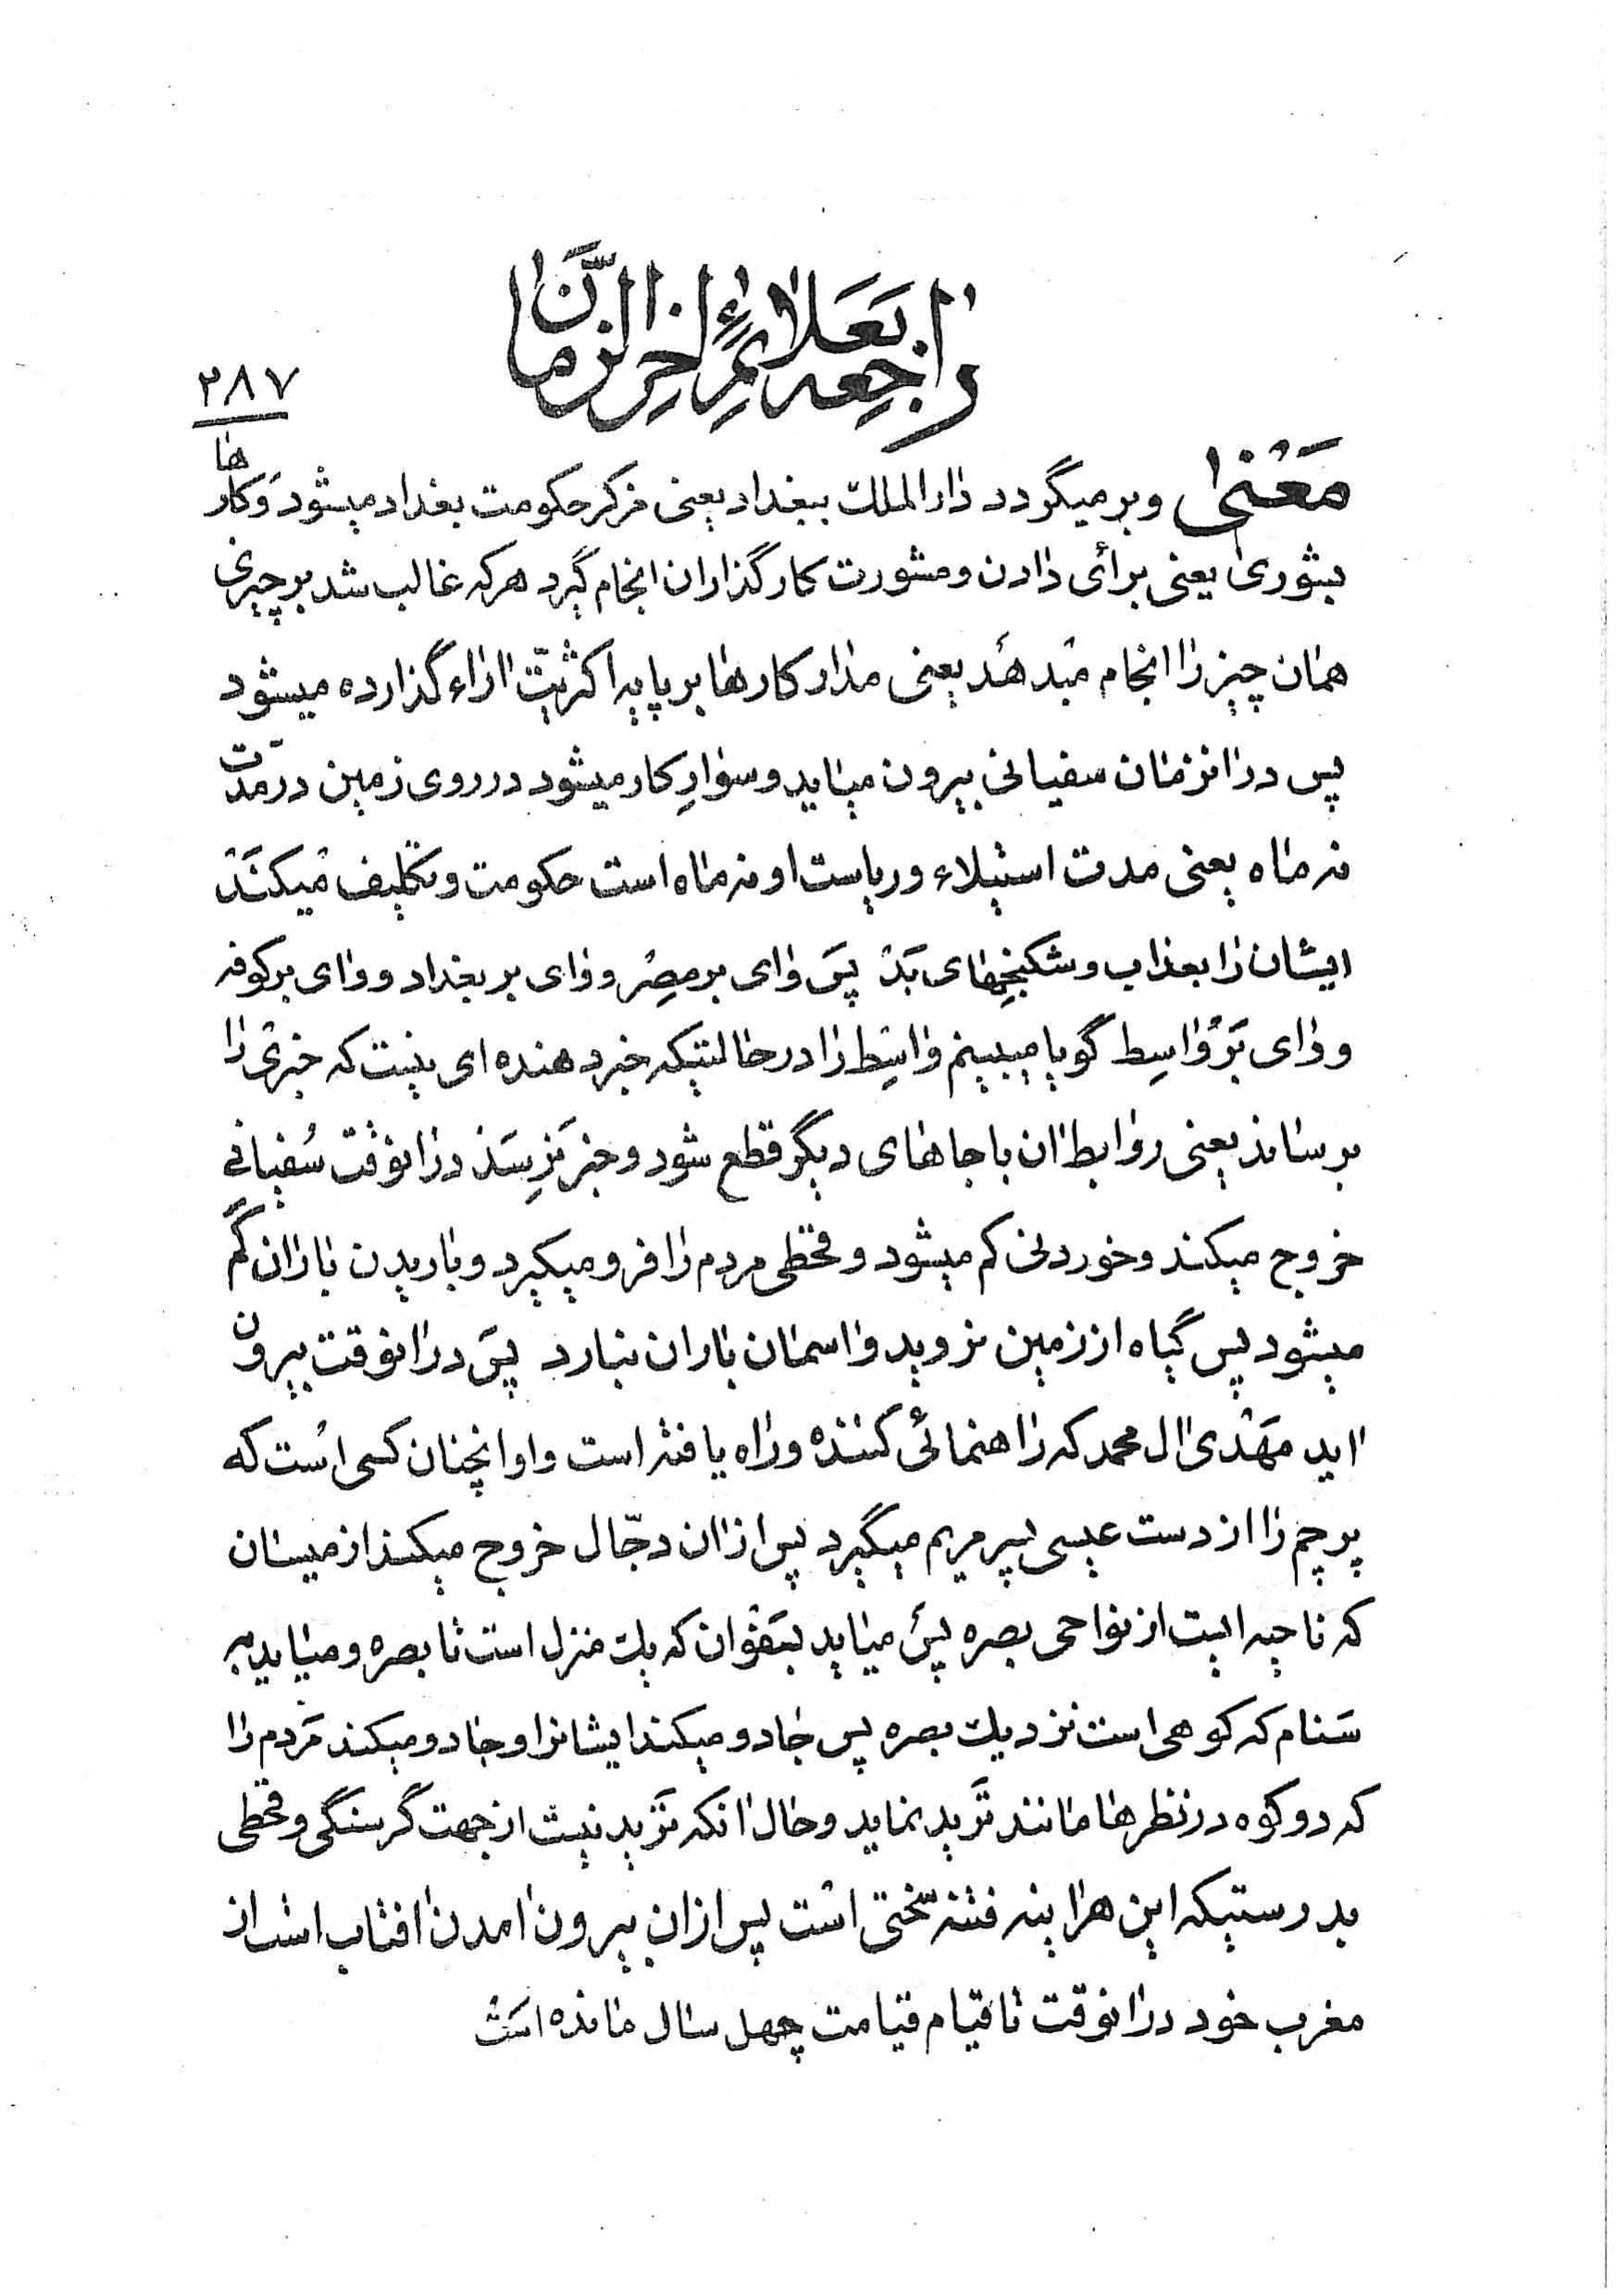 راجعه بعلائم اخر الزمان
۲۸۷
معنی وبرمیگردد دار الملک ببغداد یعنی مرکز حکومت بغداد میشود وکارها
بشوری یعنی برأی دادن ومشورت کارگذاران انجام گیرد هرکه غالب شد بر چیزی
همان چیز را انجام میدهد یعنی مدار کارها بر پایه اکثریّت اراء گذارده میشود
پس درانزمان سفیانی بیرون میاید وسوارِ کار میشود در روی زمین در مدّت
نه ماه یعنی مدت استیلاء وریاست او نه ماه است حکومت وتکلیف میکند
ایشان را بعذاب وشکنجهای بد پس وای بر مصر ووای بر بغداد ووای بر کوفه
ووای بر واسِط گویا میبینم واسِط را در حالتیکه خبر دهنده ای نیست که خبری را
برساند یعنی روابط ان با جاهای دیگر قطع شود وخبر نرِسَد درانوقت سُفیانی
خروج میکند وخوردنی کم میشود وقحطی مردم را فرو میگیرد وباریدن باران کم
میشود پس گیاه از زمین نروید واسمان باران نبارد پس درانوقت بیرون
اید مهدی ال محمد که راهنمائی کننده وراه یافته است واو انچنان کسی است که
پرچم را از دست عیسی پسر مریم میگیرد پس ازان دجّال خروج میکند از میسان
که ناحیه ایست از نواحی بصره پس میاید بسَفَوان که یک منزل است تا بصره ومیاید به
سَنام که کوهی است نزدیک بصره پس جادو میکند ایشانرا وجادو میکند مَردم را
که دو کوه در نظرها مانند تَرید نماید وحال انکه تَرید نیست از جهت گرسنگی وقحطی
بدرستیکه این هراینه فتنه سختی است پس ازان بیرون امدن افتاب است از
مغرب خود درانوقت تا قیام قیامت چهل سال مانده است